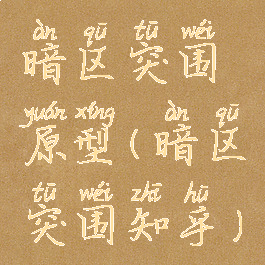 àn qū tū wéi
暗区突围
yuán xíng àn qū
原型(暗区
tū wéi zhī hū
突围知乎)